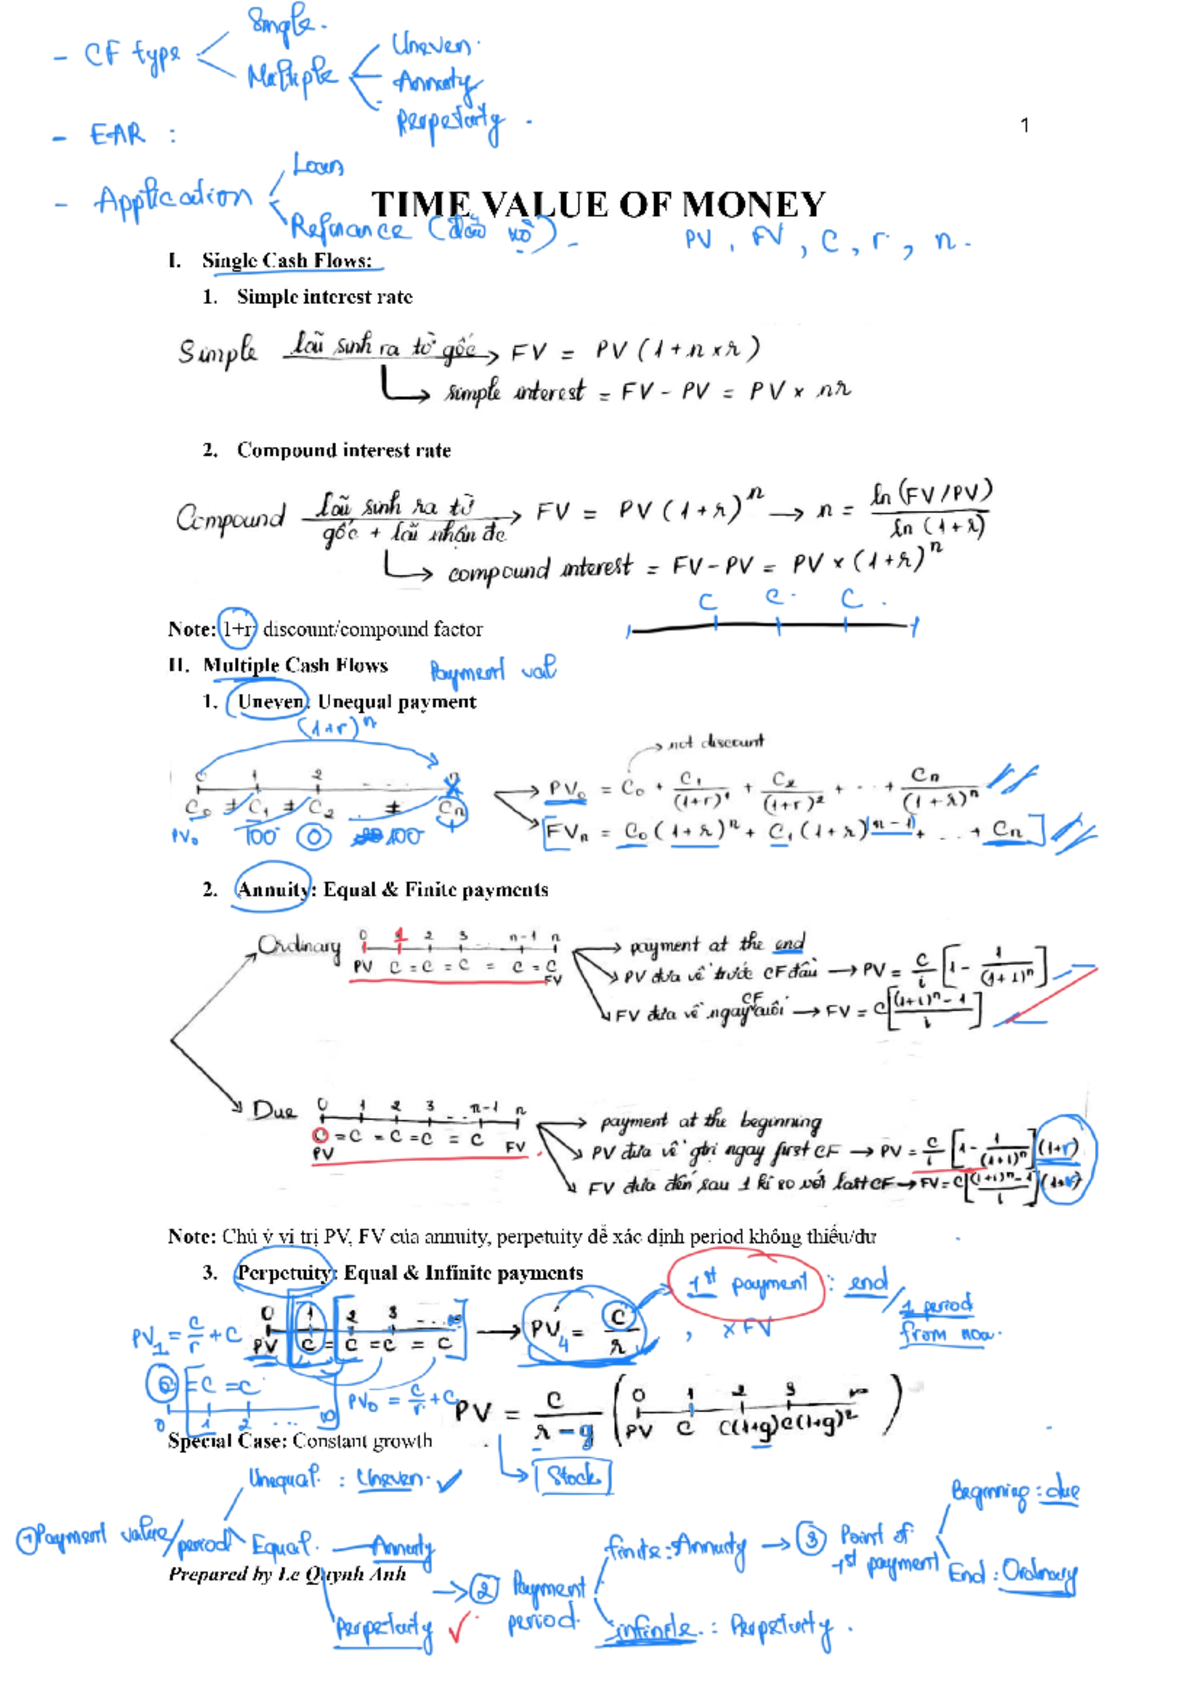 - CF type
Single.
Multiple
Uneven.
Annuity
Perpetuity.
- EAR :
1
- Application
Loan
Refinance (đảo nợ).
TIME VALUE OF MONEY
PV, FV, C, r, n.
I. Single Cash Flows:
1. Simple interest rate
Simple lãi sinh ra từ gốc → FV = PV (1 + n x r)
↳ simple interest = FV - PV = PV x nr
2. Compound interest rate
Compound lãi sinh ra từ gốc + lãi nhận đc → FV = PV (1+r)^n → n = ln (FV/PV) / ln (1+r)
↳ compound interest = FV - PV = PV x (1+r)^n
C C. C.
Note: 1+r: discount/compound factor
II. Multiple Cash Flows Payment val
1. Uneven: Unequal payment
(1+r)^n
→ not discount
1 2 ... n
C0 ≠ C1 ≠ C2 ≠ Cn
PV0 100 0 100
→ PV0 = C0 + C1/(1+r)^1 + C2/(1+r)^2 + ... + Cn/(1+r)^n
FVn = C0 (1+r)^n + C1 (1+r)^(n-1) + ... + Cn
2. Annuity: Equal & Finite payments
Ordinary 0 1 2 3 ... n-1 n
PV C = C = C = C = C
FV
→ payment at the end
PV đưa về trước CF đầu → PV = C/i [1 - 1/(1+i)^n]
FV đưa về ngay CF cuối → FV = C[((1+i)^n - 1)/i]
Due 0 1 2 3 ... n-1 n
C = C = C = C = C
PV FV
→ payment at the beginning
PV đưa về ghi ngay first CF → PV = C/i [1 - 1/(1+i)^n] (1+r)
FV đưa đến sau 1 kì so với last CF → FV = C[((1+i)^n - 1)/i] (1+r)
Note: Chú ý vị trí PV, FV của annuity, perpetuity để xác định period không thiếu/dư
3. Perpetuity: Equal & Infinite payments
1st payment : end
/ 1 period from now.
, x FV
0 1 2 3 ... ∞
PV C = C = C = C
→ PV4 = C/r
PV1 = C/r + C
C = C
0 1 2 ... 10
PV0 = C/r + C
PV = C/(r - g) (0 1 2 3 ∞
PV C C(1+g) C(1+g)^2)
Special Case: Constant growth
↳ Stock
Unequal : Uneven. ✓
① Payment value/period
Equal. — Annuity
Perpetuity ✓
Prepared by Le Quynh Anh
→ ② Payment period.
finite : Annuity → ③ Point of 1st payment
Beginning : due
End : Ordinary
infinite : Perpetuity.